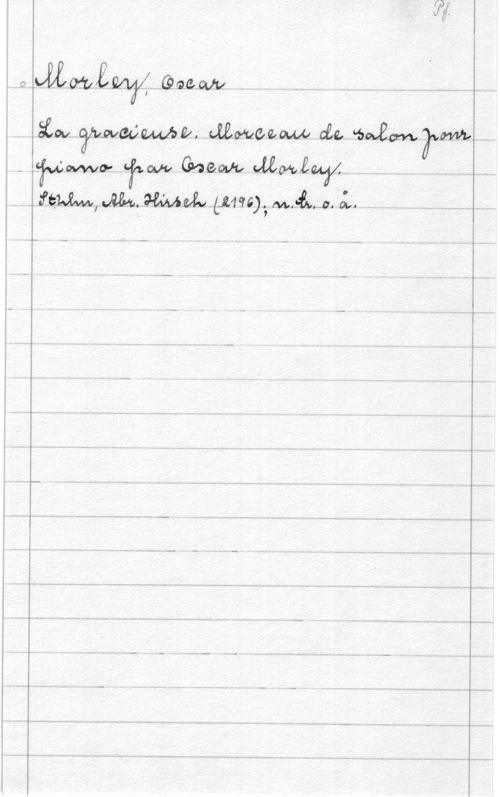 Pf.
Morley, Oscar
La gracieuse. Morceau de salon pour
piano par Oscar Morley.
Sthlm, Abr. Hirsch (2196); n.tr. o. å.